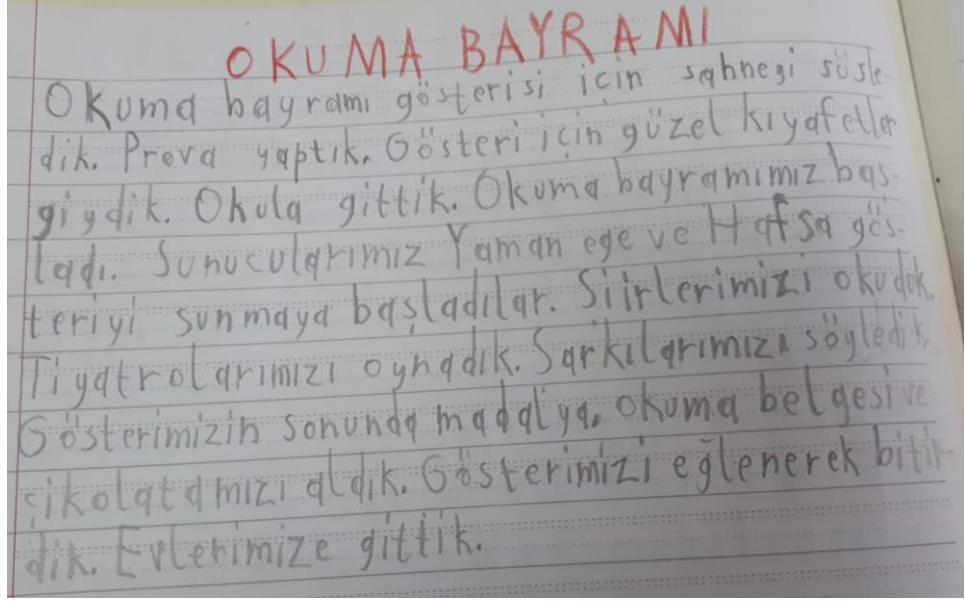 OKUMA BAYRAMI
Okuma bayramı gösterisi için sahneyi süsle-
dik. Prova yaptık. Gösteri için güzel kıyafetler
giydik. Okula gittik. Okuma bayramımız baş-
ladı. Sunucularımız Yaman ege ve Hafsa gös-
teriyi sunmaya başladılar. Siirlerimizi okuduk.
Tiyatrolarımızı oynadık. Sarkılarımızı söyledik.
Gösterimizin sonunda madalya, okuma belgesi ve
çikolatamızı aldık. Gösterimizi eğlenerek bitir-
dik. Evlerimize gittik.